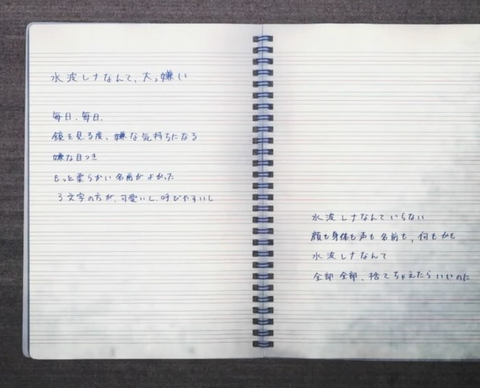 水波レナなんて、大っ嫌い
毎日、毎日、
鏡を見る度、嫌な気持ちになる
嫌な目つき
もっと柔らかい名前がよかった
3文字の方が、可愛いし、呼びやすいし
水波レナなんていらない
顔も身体も声も名前も、何もかも
水波レナなんて
全部全部、捨てちゃえたらいいのに